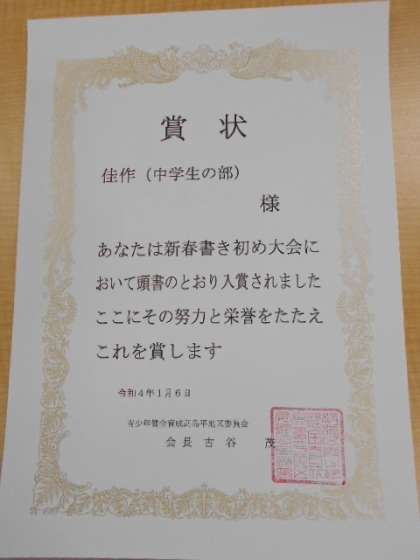 賞状
佳作（中学生の部）
様
あなたは新春書き初め大会に
おいて頭書のとおり入賞されました
ここにその努力と栄誉をたたえ
これを賞します
令和4年1月6日
青少年健全育成高島平地区委員会
会長 古谷 茂